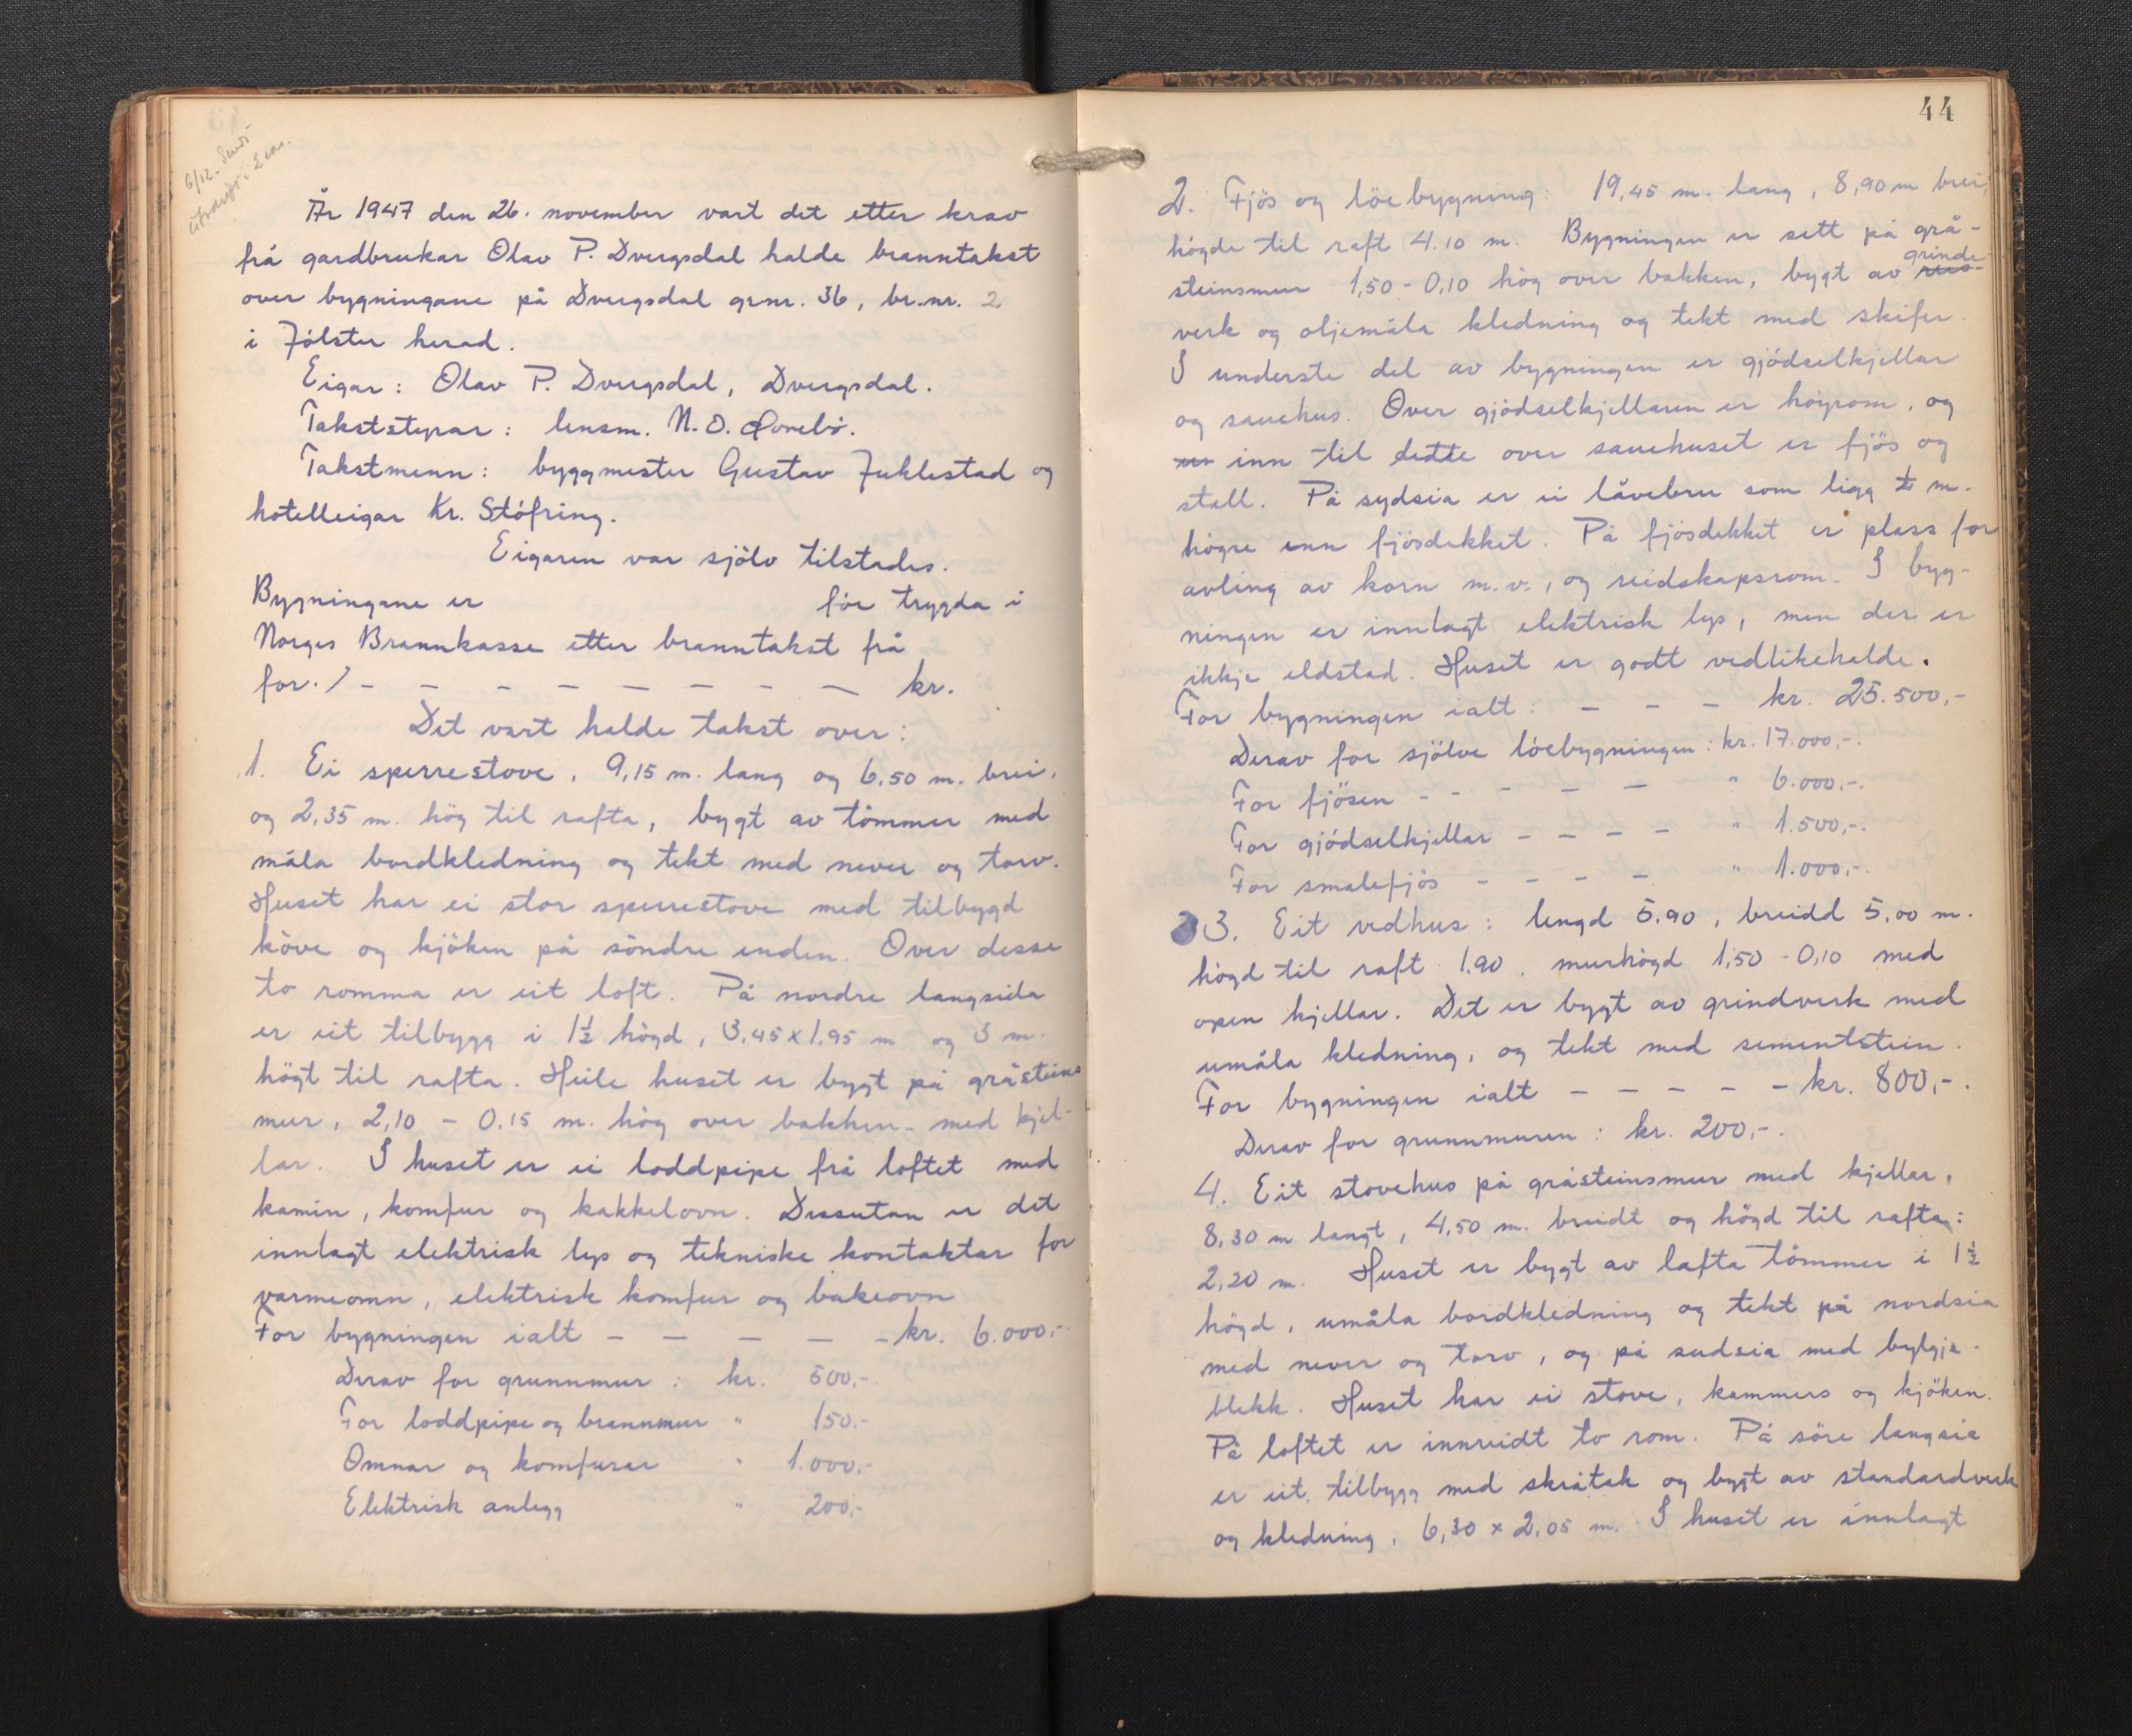 6/12- Sendt
utskrift i 2 eks.
År 1947 den 26. november vart det etter krav
frå gardbrukar Olav P. Dvergsdal halde branntakst
over bygningane på Dvergsdal grnr. 36, br.nr. 2
i Jölster herad.
Eigar: Olav P. Dvergsdal, Dvergsdal.
Takststyrar: lensm. N. O. Förebö.
Takstmenn: byggmester Gustav Juklestad og
hotelleigar Kr. Stöfring.
Eigaren var sjölv tilstades.
Bygningane er för trygda i
Norges Brannkasse etter branntakst frå
for. / - - - - - - - - kr.
Det vart halde takst over:
1. Ei sperrestove, 9,15 m. lang og 6,50 m. brei,
og 2,35 m. hög til rafta, bygt av tömmer med
måla bordkledning og tekt med never og torv.
Huset har ei stor sperrestove med tilbygd
kòve og kjöken på söndre enden. Over desse
to romma er eit loft. På nordre langsida
er eit tilbygg i 1½ högd, 3,45 x 1,95 m og 3 m.
högt til rafta. Heile huset er bygt på gråsteins
mur, 2,10 - 0,15 m. hög over bakken - med kjel-
lar. I huset er ei loddpipe frå loftet med
kamin, komfur og kakkelovn. Dessutan er det
innlagt elektrisk lys og tekniske kontaktar for
varmeomn, elektrisk komfur og bakeovn
For bygningen ialt - - - - - kr. 6.000,-
Derav for grunnmur: kr. 500,-
For loddpipe og brannmur " 150.-
Omnar og komfurar " 1.000,-
Elektrisk anlegg " 200,-
44
2. Fjös og löebygning: 19,45 m. lang, 8,90 m brei,
högde til raft 4.10 m. Bygningen er sett på grå-
grinde
steinsmur 1,50 - 0,10 hög over bakken, bygt av
verk og oljemåla kledning og tekt med skifer.
I underste del av bygningen er gjödselkjellar
og sauehus. Over gjödselkjellaren er höyrom, og
inn til dette over sauehuset er fjös og
stall. På sydsia er ei låvebru som ligg m.
högre enn fjösdekket. På fjösdekket er plass for
avling av korn m.v., og reidskapsrom. I byg-
ningen er innlagt elektrisk lys, men der er
ikkje eldstad. Huset er godt vedlikehalde.
For bygningen ialt: - - - kr. 25.500,-
Derav for sjölve löebygningen: kr. 17.000,-.
For fjösen - - - - - " 6.000,-.
For gjödselkjellar - - - - " 1.500,-.
For smalefjös - - - - " 1.000,-.
3. Eit vedhus: lengd 5.90, breidd 5,00 m.
högd til raft 1.90, murhögd 1,50 - 0,10 med
open kjellar. Det er bygt av grindverk med
umåla kledning, og tekt med sementstein.
For bygningen ialt - - - - - kr. 800,-.
Derav for grunnmuren: kr. 200,-.
4. Eit stovehus på gråsteinsmur med kjellar,
8,30 m langt, 4,50 m. breidt og högd til rafta:
2,20 m. Huset er bygt av lafta tömmer i 1½
högd, umåla bordkledning og tekt på nordsia
med never og torv, og på sudsia med bylgje-
blekk. Huset har ei stove, kammers og kjöken.
På loftet er innreidt to rom. På söre langsia
er eit tilbygg med skråtak og bygt av standardverk
og kledning, 6,30 x 2,05 m. I huset er innlagt